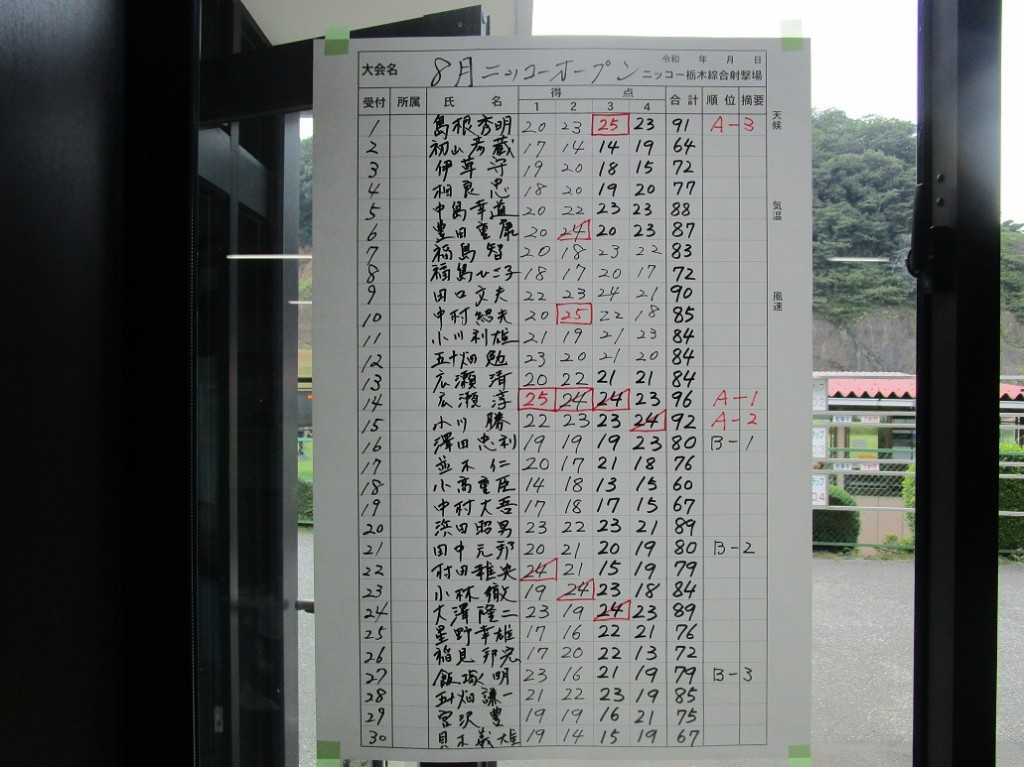 大会名 8月ニッコーオープン 令和 年 月 日
ニッコー栃木綜合射撃場
受付 所属 氏名 得点 合計 順位 摘要
1 2 3 4
1 島根秀明 20 23 25 23 91 A-3
2 初山秀蔵 17 14 14 19 64
3 伊華守 19 20 18 15 72
4 相良忠 18 20 19 20 77
5 中島幸道 20 22 23 23 88
6 豊田重康 20 24 20 23 87
7 福島智 20 18 23 22 83
8 福島ひこ子 18 17 20 17 72
9 田口文夫 22 23 24 21 90
10 中村紹夫 20 25 22 18 85
11 小川利雄 21 19 21 23 84
12 五十畑勉 23 20 21 20 84
13 広瀬清 20 22 21 21 84
14 広瀬淳 25 24 24 23 96 A-1
15 小川勝 22 23 23 24 92 A-2
16 澤田忠利 19 19 19 23 80 B-1
17 並木仁 20 17 21 18 76
18 小高重臣 14 18 13 15 60
19 中村大吾 17 18 17 15 67
20 浜田昭男 23 22 23 21 89
21 田中元邦 20 21 20 19 80 B-2
22 村田雅央 24 21 15 19 79
23 小林徹 19 24 23 18 84
24 大澤隆二 23 19 24 23 89
25 星野幸雄 17 16 22 21 76
26 稲見邦宏 17 20 22 13 72
27 飯塚明 23 16 21 19 79 B-3
28 五十畑謙一 21 22 23 19 85
29 宮沢豊 19 19 16 21 75
30 貝木義雄 19 14 15 19 67
天候
気温
風速